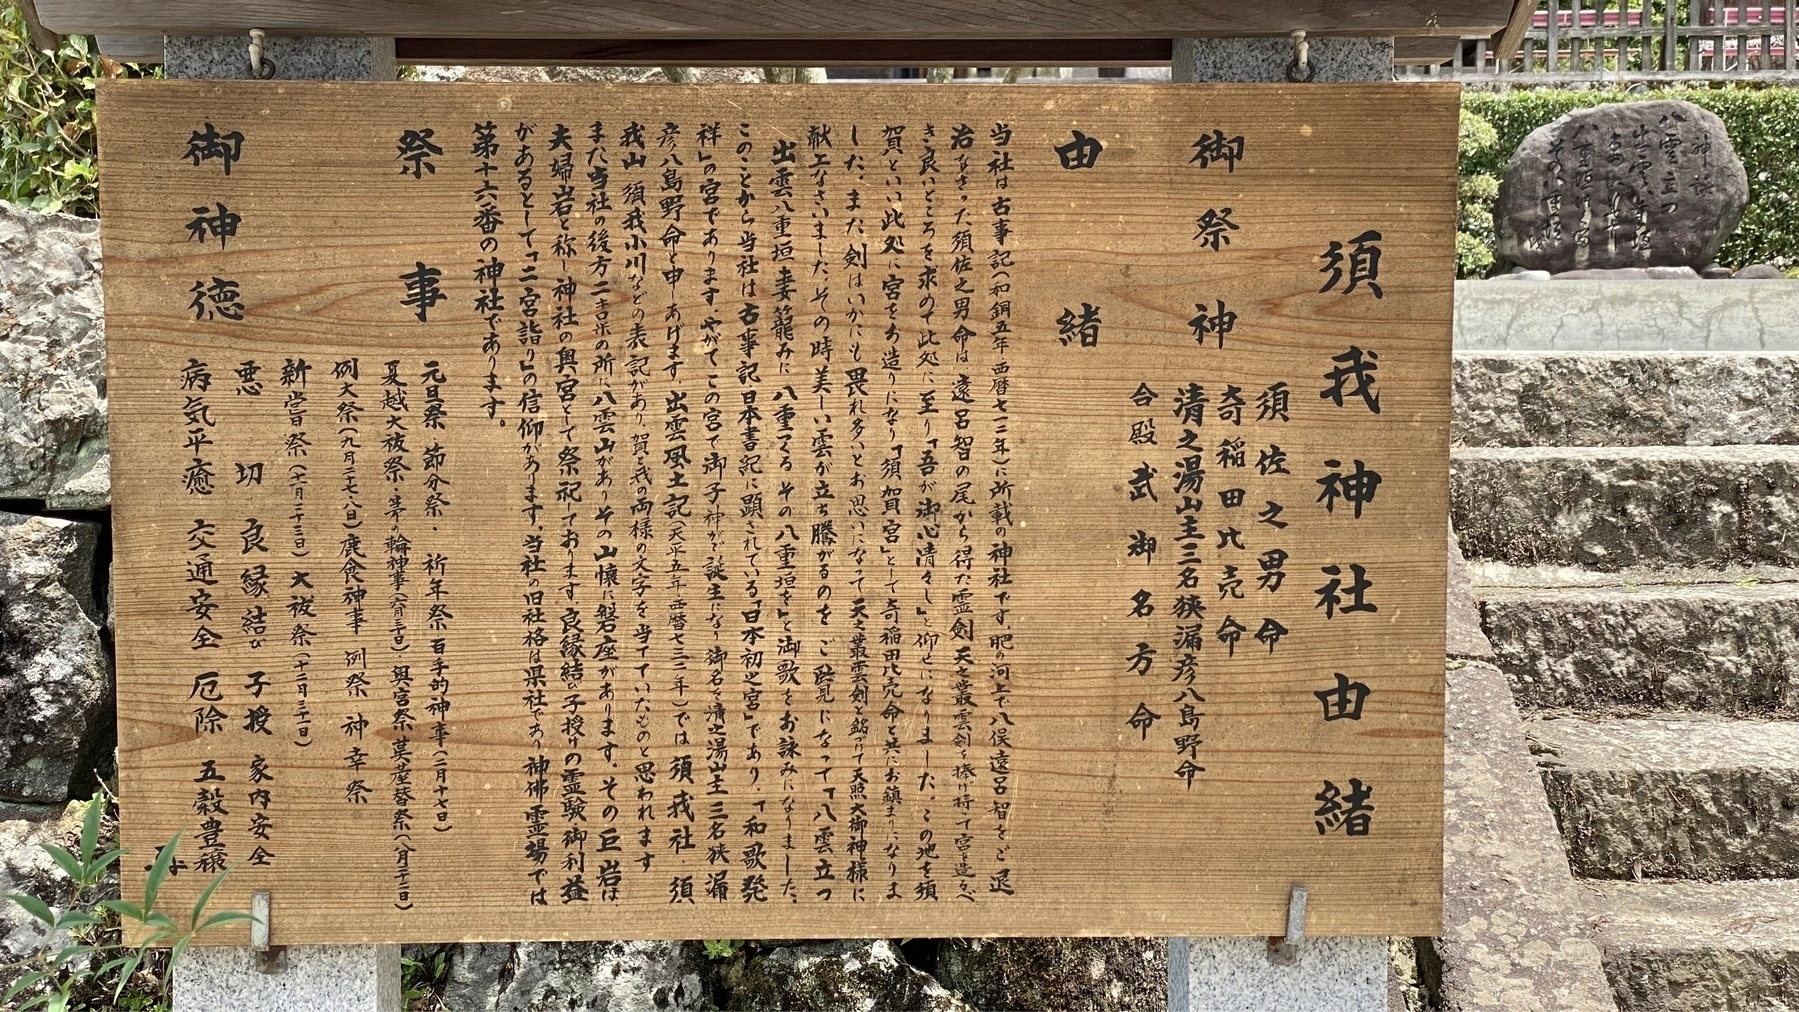 須我神社由緒
御祭神
須佐之男命
奇稲田比売命
清之湯山主三名狭漏彦八島野命
合殿 武御名方命
由緒
当社は古事記(和銅五年西暦七一二年)に所載の神社です。肥の河上で八俣遠呂智をご退
治なさった須佐之男命は 遠呂智の尾から得た霊剣 天之叢雲剣を捧げ持って宮を造るべ
き良いところを求めて此処に至り「吾が御心清々し」と仰せになりました。この地を須
賀といい此処に宮をお造りになり「須賀宮」として奇稲田比売命と共にお鎮まりになりま
した。また剣はいかにも畏れ多いとお思いになって天之叢雲剣と銘づけて天照大御神様に
献上なさいました。その時美しい雲が立ち騰がるのをご覧になって「八雲立つ
出雲八重垣 妻籠みに 八重つくる その八重垣を」と御歌をお詠みになりました。
このことから当社は古事記日本書紀に顕されている「日本初之宮」であり、「和歌発
祥」の宮であります。やがてこの宮で御子神がご誕生になり御名を清之湯山主三名狭漏
彦八島野命と申しあげます。出雲風土記(天平五年西暦七三三年)では須我社・須
我山 須我小川などの表記があり、賀と我の両様の文字を当てていたものと思われます
また当社の後方二吉米の所に八雲山がありその山懐に磐座があります。その巨岩は、
夫婦岩と称し神社の奥宮として祭祀しております。良縁結び子授けの霊験・御利益
があるとして「二宮詣り」の信仰があります。当社の旧社格は県社であり 神佛霊場では
第十六番の神社であります。
祭事
元旦祭 節分祭・ 祈年祭 百手的神事(二月十七日)
夏越大祓祭・茅の輪神事(六月三十日) 奥宮祭 茣蓙替祭(八月二十二日)
例大祭(九月二十七・八日)鹿食神事 例祭 神幸祭
新嘗祭(十一月二十三日) 大祓祭(十二月三十一日)
御神徳
悪切 良縁結び 子授 家内安全
病気平癒 交通安全 厄除 五穀豊穣
神詠
八雲立つ
出雲八重垣